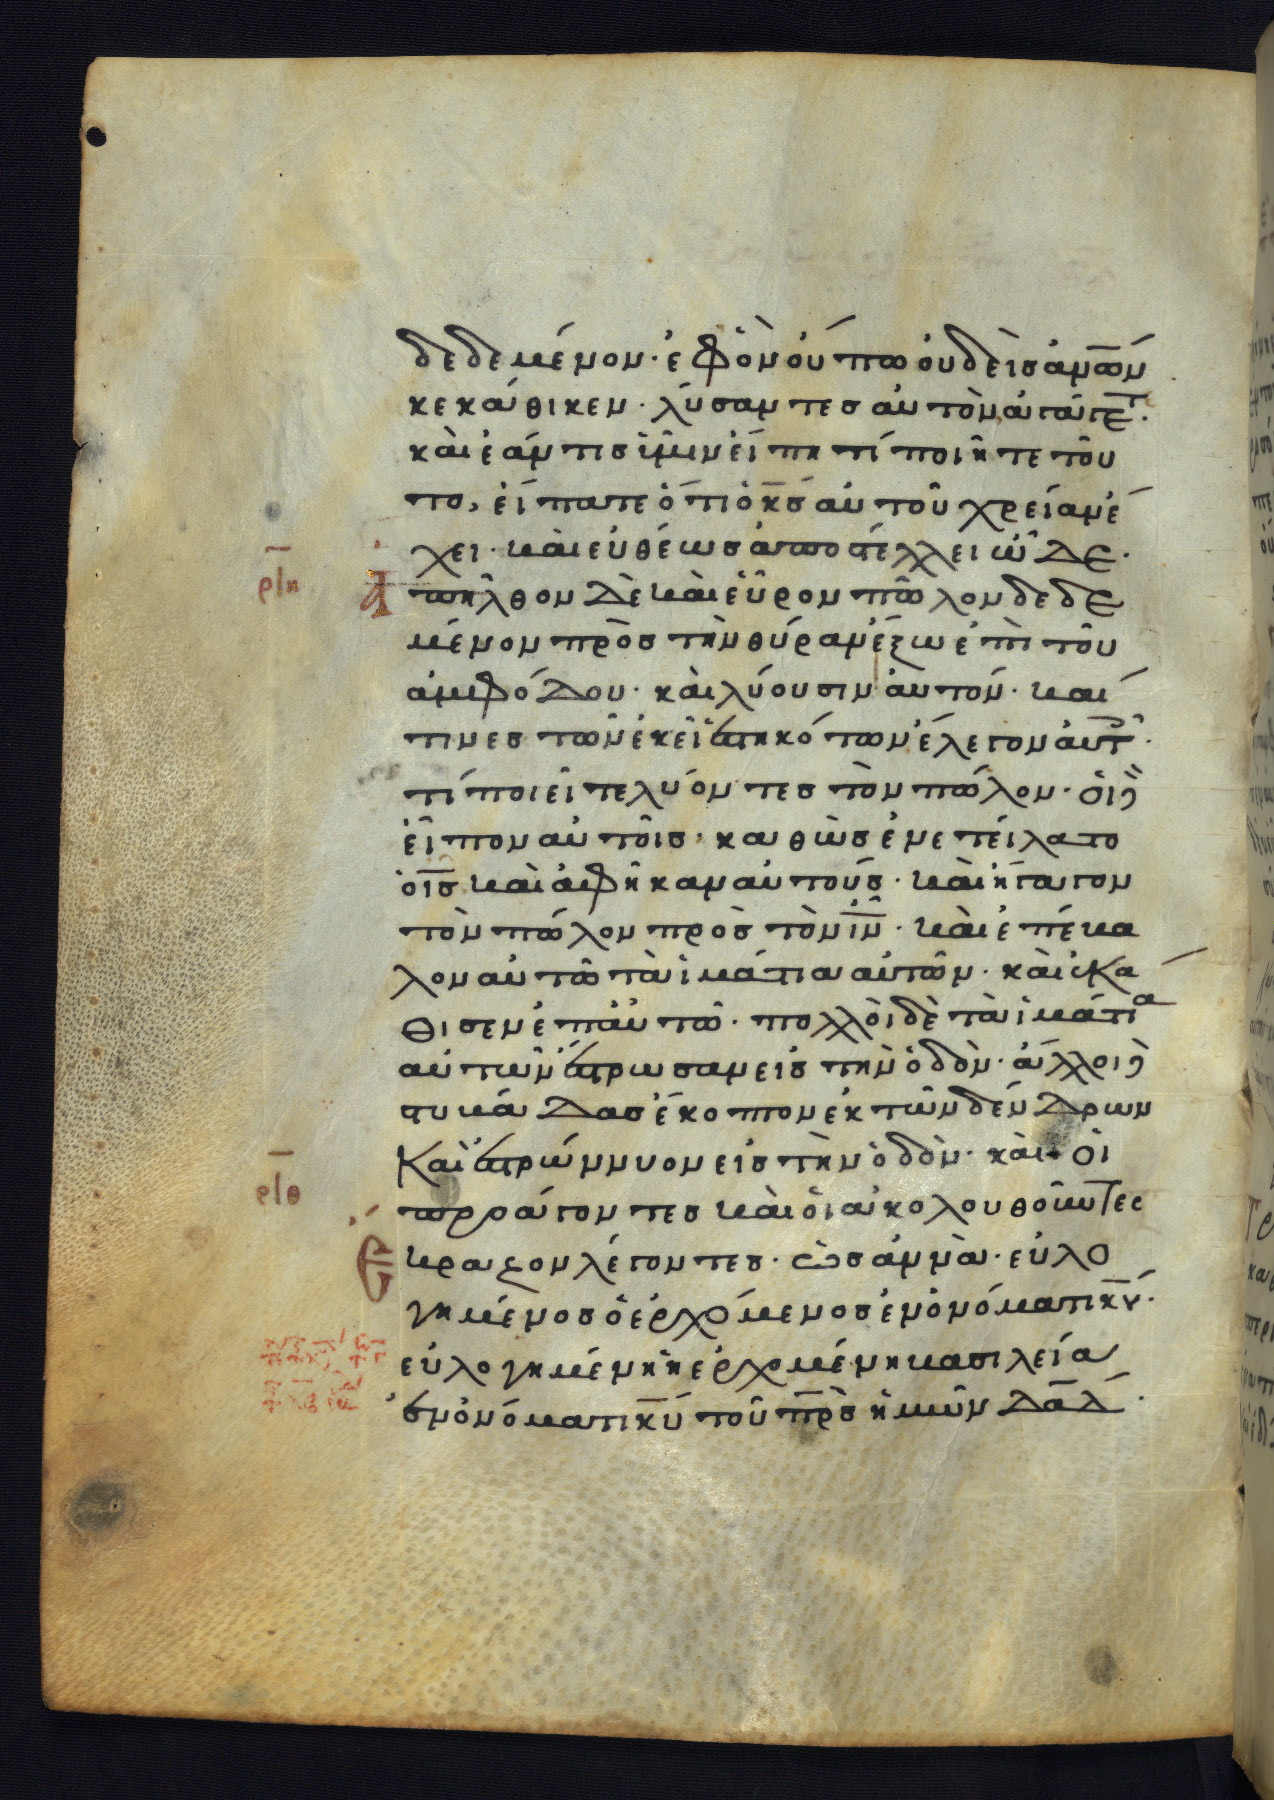 δεδεμένον· ἐφ ὃν ούπω ὀυδὲισ ἀν̅ω̅ν
κεκάθικεν· λύσαντεσ αυτὸν ἀγάγετ·
κὰι ἐάν τισ ὑμιν εἴπη τί ποιῆτε τοῦ
το, εἴπατε ὅτι ὁ κ̅σ̅ αυτοῦ χρείαν έ
χει· κὰι ευθέωσ ἀποστέλλει ῶδε·
ἀπηλθον δὲ κὰι εὗρον πῶλον δεδε
μένον πρὸσ τὴν θύραν έξω ἐπὶ τοῦ
ἀμφόδου· κὰι λύουσιν ἀυτόν· και
τινεσ τῶν ἐκεῖ ἑστηκότων έλεγον ἀυτ·
τί ποιεῖτε λυόντεσ τὸν πῶλον· ὁι δ
εἶπον αὐτοῖσ· καθὼσ ἐνετείλατο
ὁ ι̅σ̅ κὰι ἀφῆκαν αὐτούσ· κὰι ήγαγον
τὸν πῶλον πρὸσ τὸν ι̅ν̅· κὰι ἐπέκα
λον αυτῶ τὰ ἱμάτια αὐτῶν· κὰι ἐκά
θισεν ἐπ ἀυτῶ· πολλὸι δὲ τὰ ἱμάτια
αὐτῶν ἔστρωσαν εἰσ τὴν ὁδὸν· ἄλλοι δ
στυκάδασ έκοπτον ἐκ τῶν δένδρων
Και ἐστρώννυον εἰσ τὴν ὁδὸν· κὰι ὁι
προάγοντεσ κὰι ὁι ἀκολουθοῦντεσ
Εκραζον λέγοντεσ· ὡσαννὰ· εὐλο
γημένοσ ὁ ἐρχόμενοσ ἐν ὀνόματι κ̅υ̅·
εὐλογημένη ἡ ερχομένη βασιλεία
ἐν ὀνόματι κ̅υ̅ τοῦ π̅ρ̅σ̅ ἡμῶν δ̅α̅δ̅·
ρϟη
ρϟθ